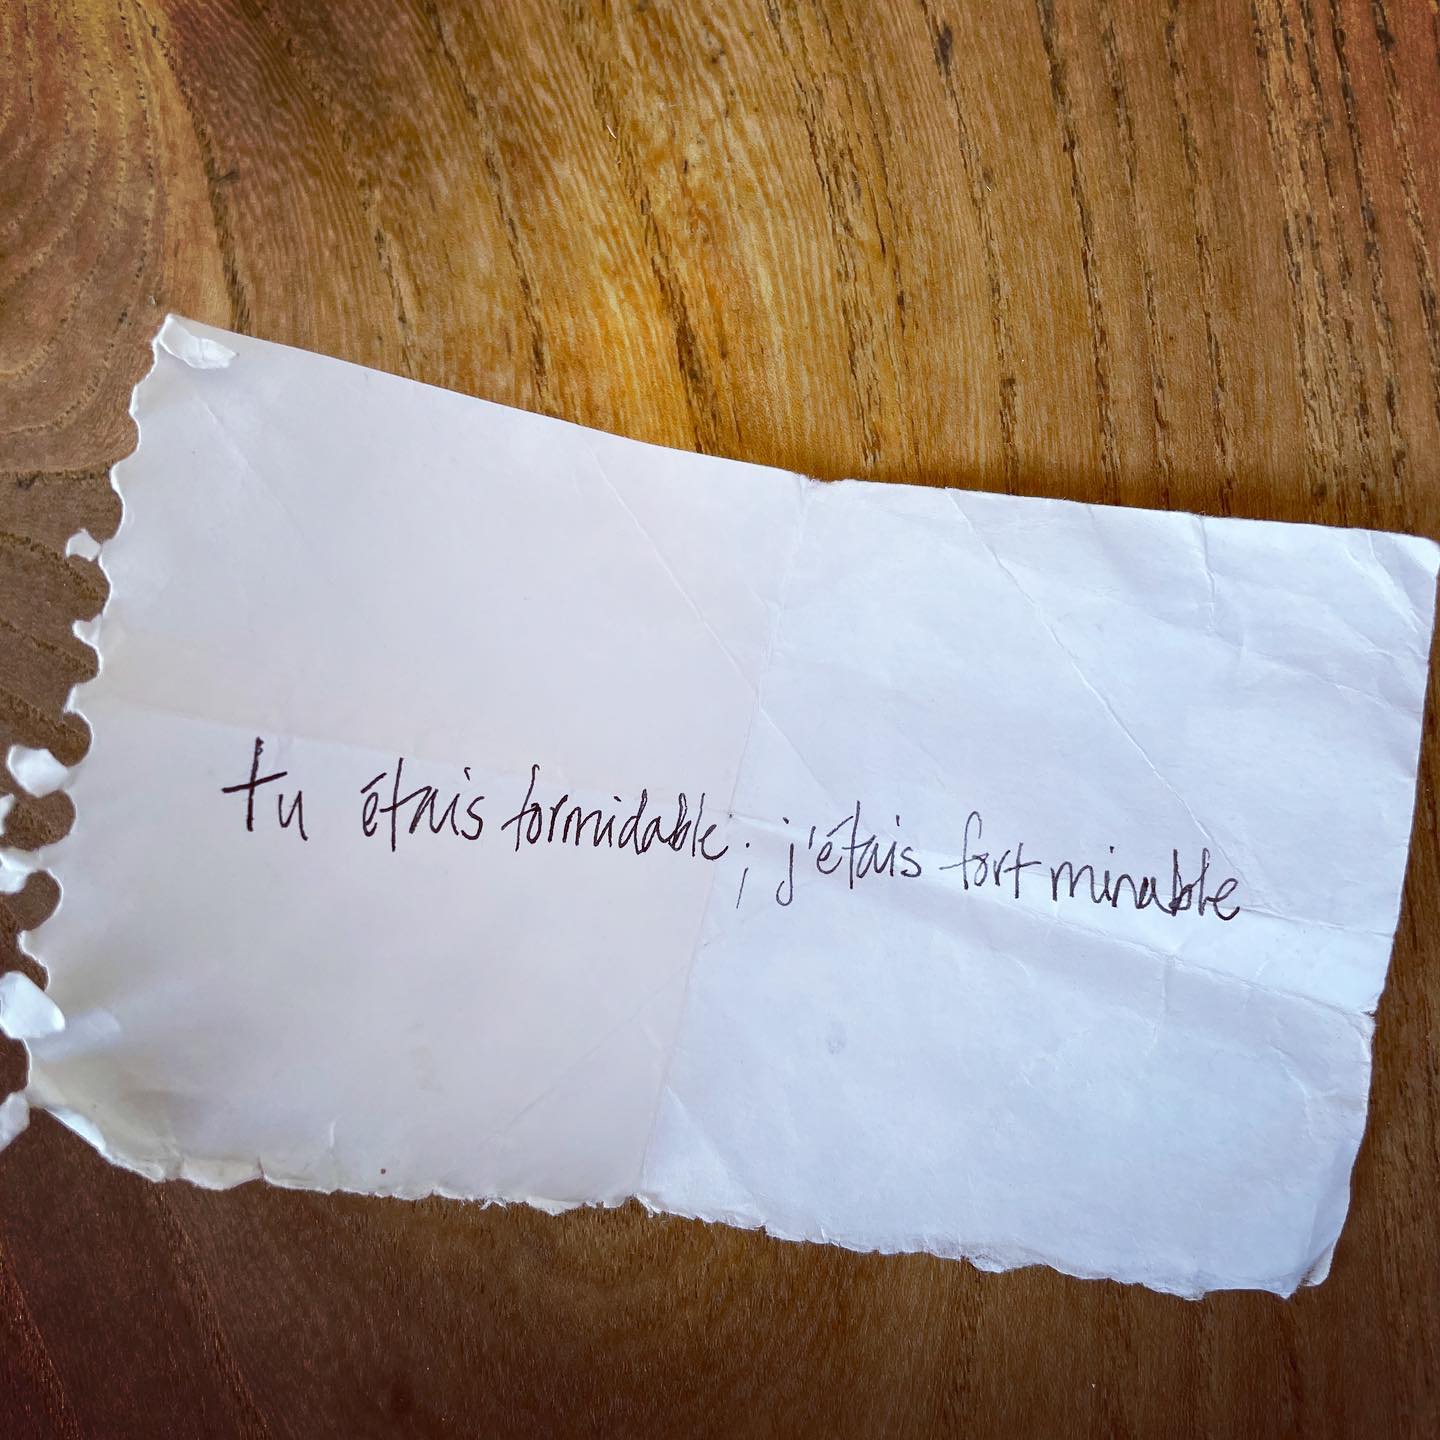 tu étais formidable; j'étais fort minable